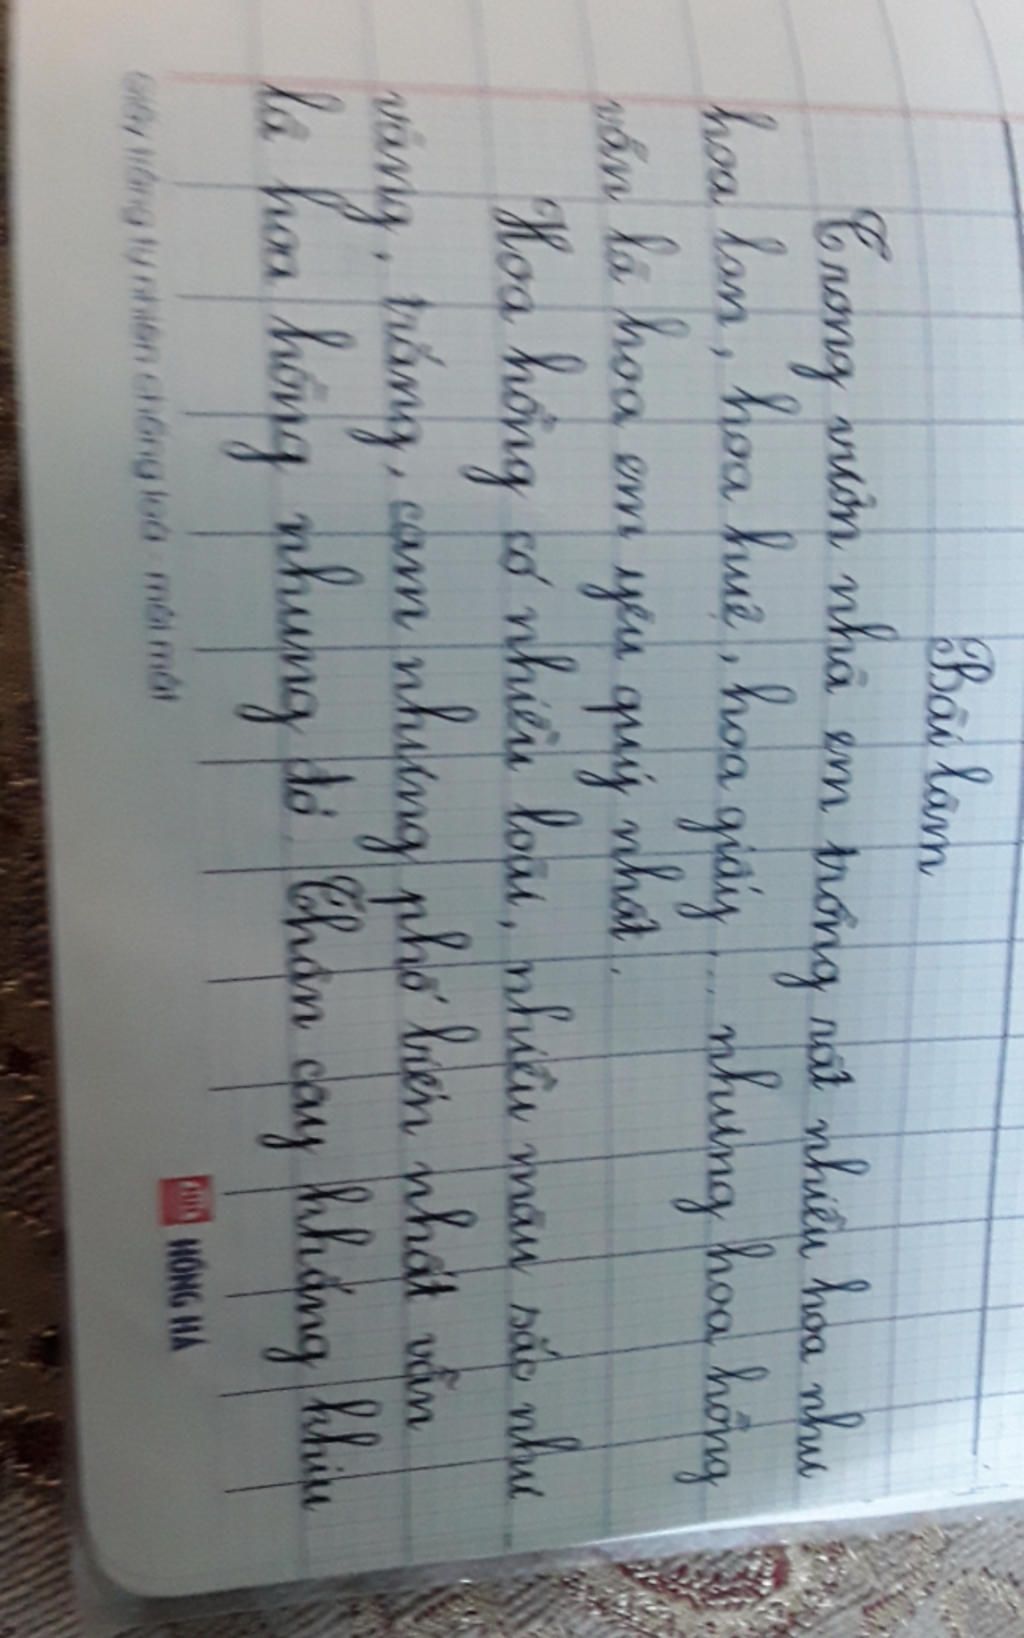 Bài làm
Trong vườn nhà em trồng rất nhiều hoa như
hoa lan, hoa huệ, hoa giấy,... nhưng hoa hồng
vẫn là hoa em yêu quý nhất.
Hoa hồng có nhiều loài, nhiều màu sắc như
vàng, trắng, cam nhưng phổ biến nhất vẫn
là hoa hồng nhung đỏ. Thân cây khẳng khiu
Giấy trắng tự nhiên chống loá - mỏi mắt
HỒNG HÀ